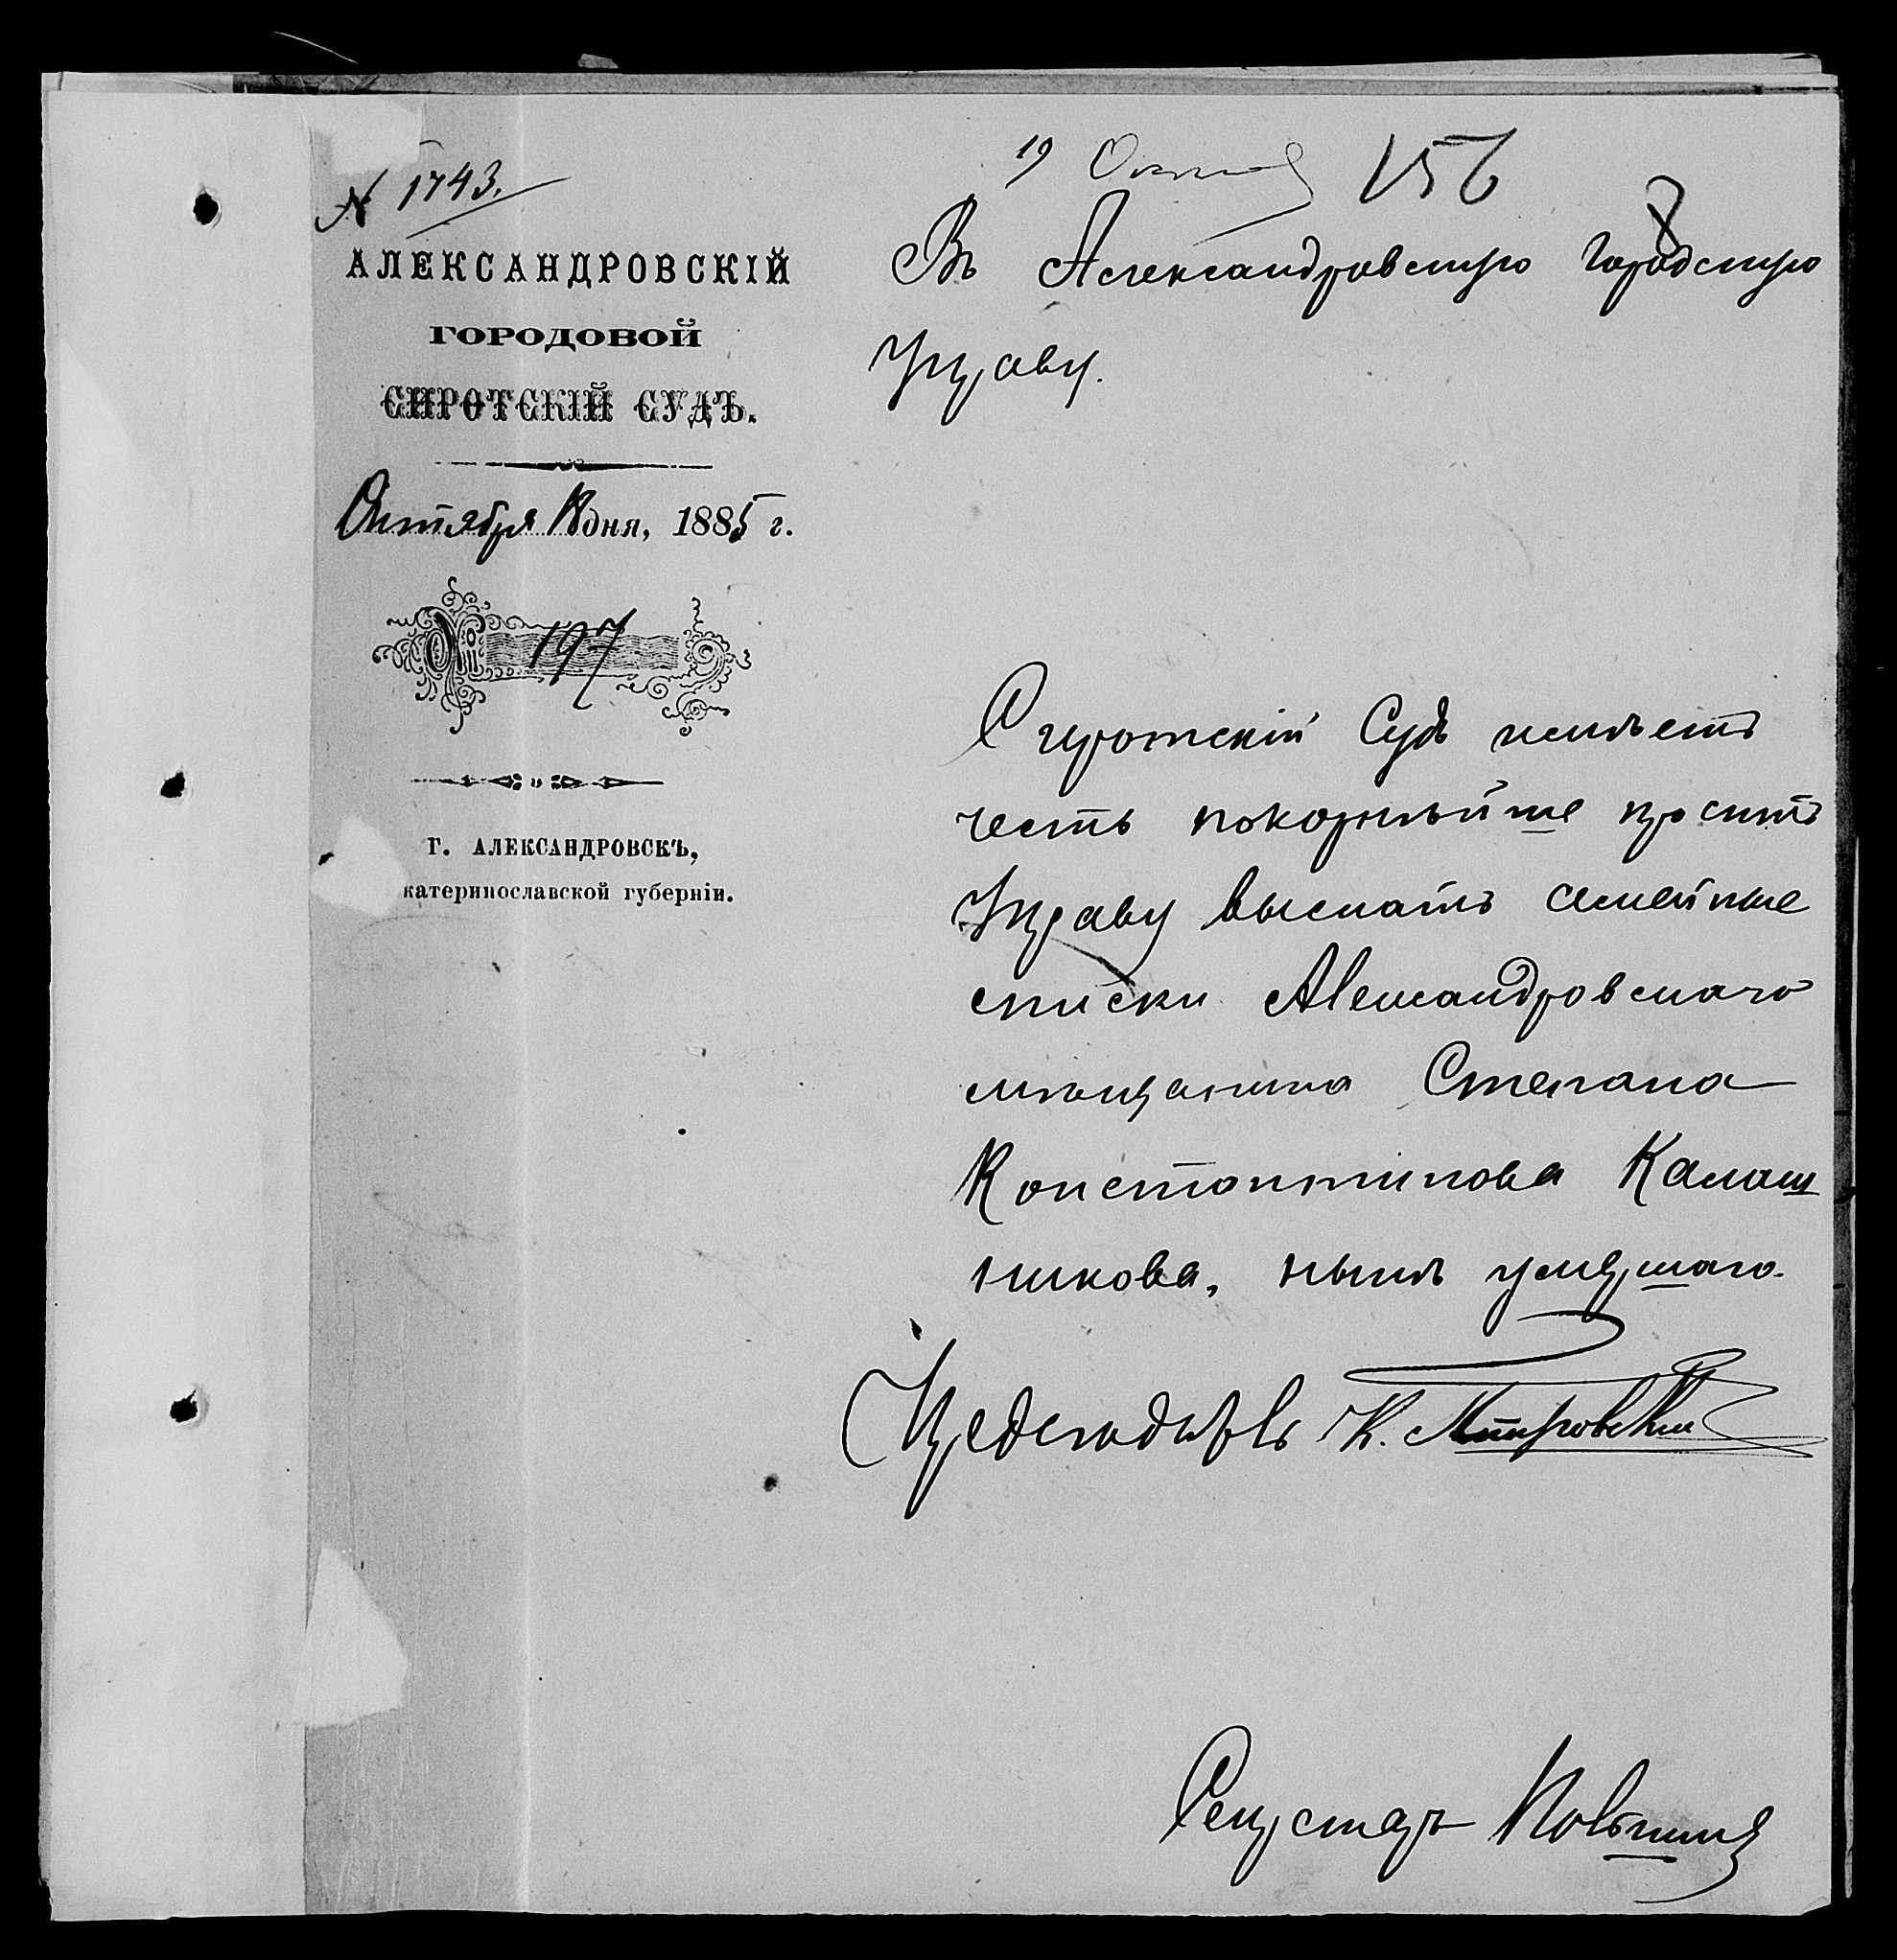 № 1743.
АЛЕКСАНДРОВСКІЙ
ГОРОДОВОЙ
СИРОТСКІЙ СУДЪ.
Октября 18 дня, 1885 г.
№ 197
Г. АЛЕКСАНДРОВСКЪ,
катеринославской губерніи.
19 Октяб 156
Въ Александровскую Городскую
Управу.
Сиротскій Судъ имѣетъ
честь покорнѣйше просить
Управу выслать семейные
списки Александровскаго
мѣщанина Степана
Константинова Калаш
никова, нынѣ умершаго.
Предсѣдатель К.
Секретарь